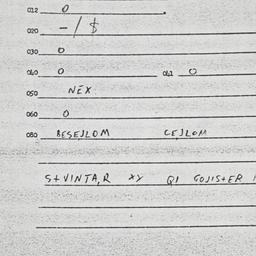 012 0
020 -/$
030 0
040 0 041 0
050 NEX
060 0
080 BESEJLOM CEJLOM
S+VINTA,R XY QI GOJIS+ER